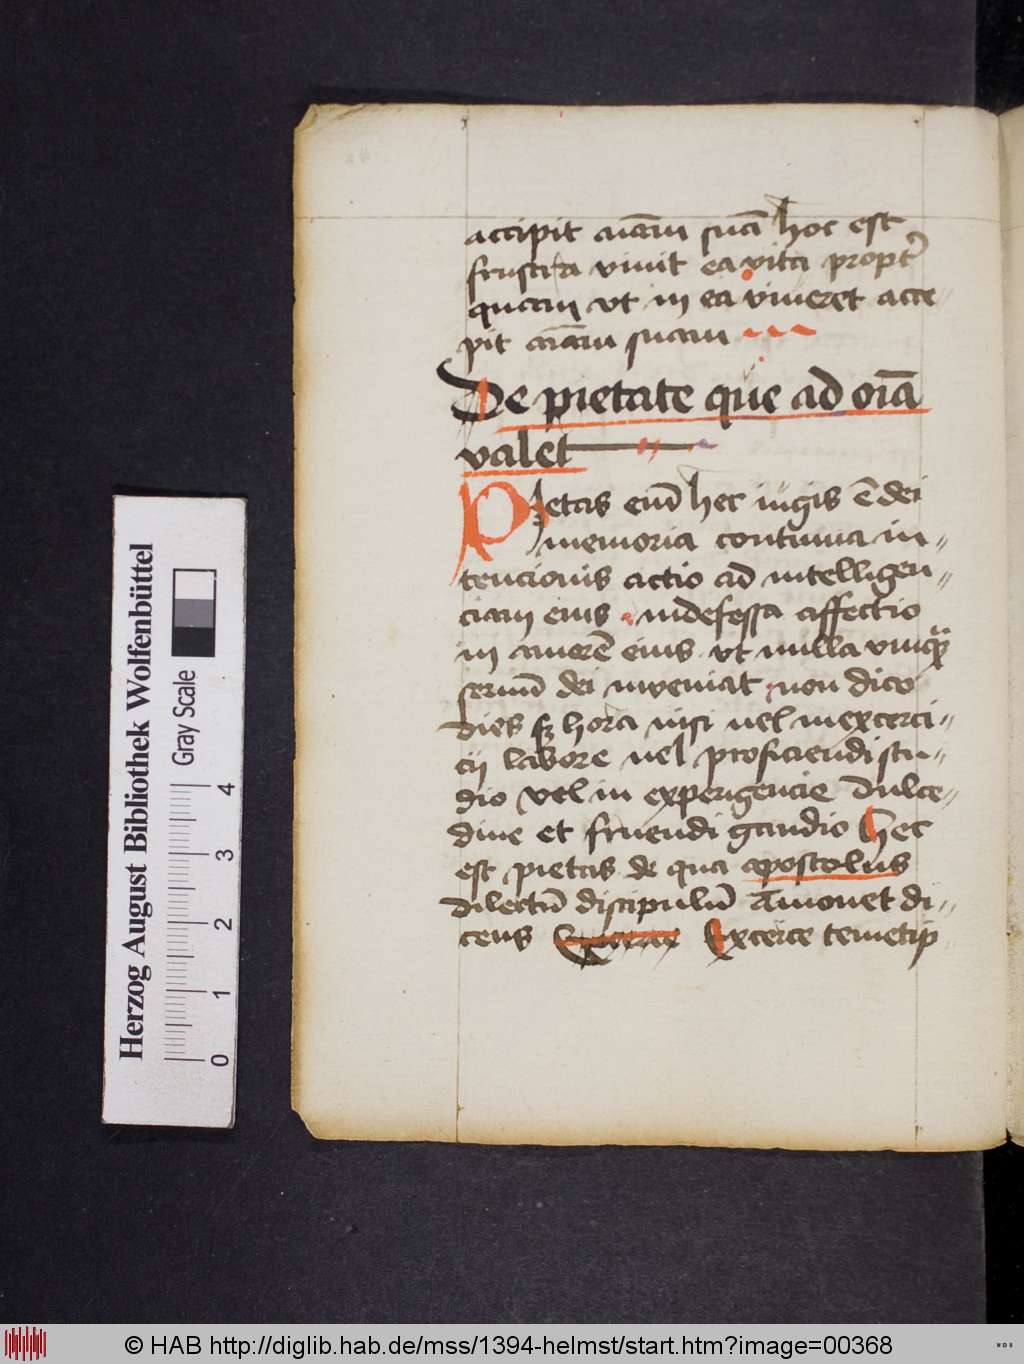 accipit aīam suā hoc est
frustra viuit ea vita propt̄
quam vt in ea viueret acce-
pit aīam suam
De pietate que ad oīa
valet
Pietas eni̅ hec iugis ē dei
memoria continua in-
tencionis actio ad intelligen-
ciam eius indefessa affectio
in amorē eius vt nulla vnq̄
seruū dei inueniat non dico
dies sꝫ hora nisi uel in exerci-
cij labore uel proficiendi stu-
dio vel in experigencie dulce-
dine et fruendi gaudio Hec
est pietas de qua apostolus
dilectū discipulū āmonet di-
cens Exerce temetip
Herzog August Bibliothek Wolfenbüttel
Gray Scale
0 1 2 3 4
© HAB http://diglib.hab.de/mss/1394-helmst/start.htm?image=00368